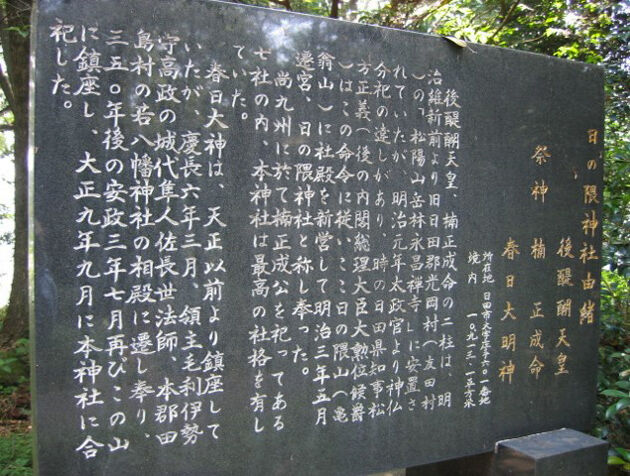 日の隈神社由緒
後醍醐天皇
祭神 楠 正成命
春日大明神
所在地 日田市大字庄手六〇一番地
境内 一〇九三、一五方米
後醍醐天皇、楠正成命の二柱は、明
治維新前より旧日田郡光岡村(友田村
)の「松陽山岳林永昌禅寺」に安置さ
れていたが、明治元年太政官より神仏
分祀の達しがあり、時の日田県知事松
方正義(後の内閣総理大臣大勲位候爵
)はこの命令に従い、ここ日の隈山(亀
翁山)に社殿を新営して明治三年五月
遷宮、日の隈神社と称し奉った。
尚九州に於て楠正成公を祀ってある
七社の内、本神社は最高の社格を有し
ていた。
春日大神は、天正以前より鎮座して
いたが、慶長六年三月、領主毛利伊勢
守高政の城代隼人佐長世法師、本郡田
島村の若八幡神社の相殿に遷し奉り、
三五〇年後の安政三年七月再びこの山
に鎮座し、大正九年九月に本神社に合
祀した。